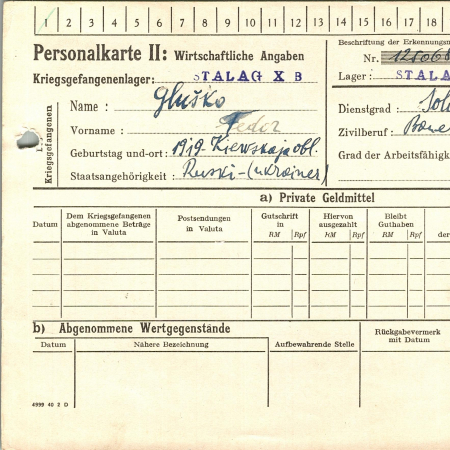 1 2 3 4 5 6 7 8 9 10 11 12 13 14 15 16 17 18
Personalkarte II: Wirtschaftliche Angaben
Beschriftung der Erkennungsm
Nr. 125068
Kriegsgefangenenlager: STALAG X B
Lager: STALA
Kriegsgefangenen
Name: Gluško
Dienstgrad: Sol
Vorname: Fedor
Zivilberuf:
Geburtstag und-ort: 1919-Kiewskaja obl.
Grad der Arbeitsfähigk
Staatsangehörigkeit: Ruski-(ukrainer)
a) Private Geldmittel
Datum
Dem Kriegsgefangenen abgenommene Beträge in Valuta
Postsendungen in Valuta
Gutschrift in
Hiervon ausgezahlt
Bleibt Guthaben
RM Rpf RM Rpf RM Rpf
der
b) Abgenommene Wertgegenstände
Datum
Nähere Bezeichnung
Aufbewahrende Stelle
Rückgabevermerk mit Datum
4999 40 2 D